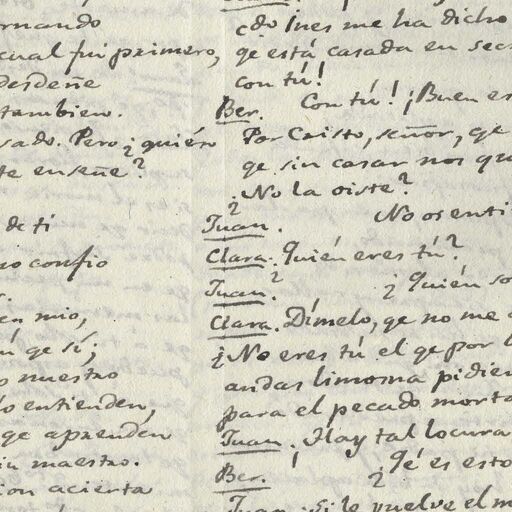 rnando
cual fui primero,
desdeñe
tambien.
sado. Pero ¿quién
te enseñe?
de ti
no confio
en mio,
ge sí;
nuestro
lo entienden,
ge aprenden
maestro.
ion acierta
cdo Ines me ha dicho
ge está casada en sec
con tú!
Ber. Con tú! ¡Buen es
Por Cristo, señor, ge
ge sin casar nos qu
¿No la oiste?
Juan. No os enti
Clara. ¿Quién eres tú?
Juan. ¿Quién so
Clara. Dímelo, ge no me
¿No eres tú el ge por l
andas limosna pidien
para el pecado morta
Juan. ¡Hay tal locura
Ber. ¿Gé es esto
Juan. Si le vuelve el m